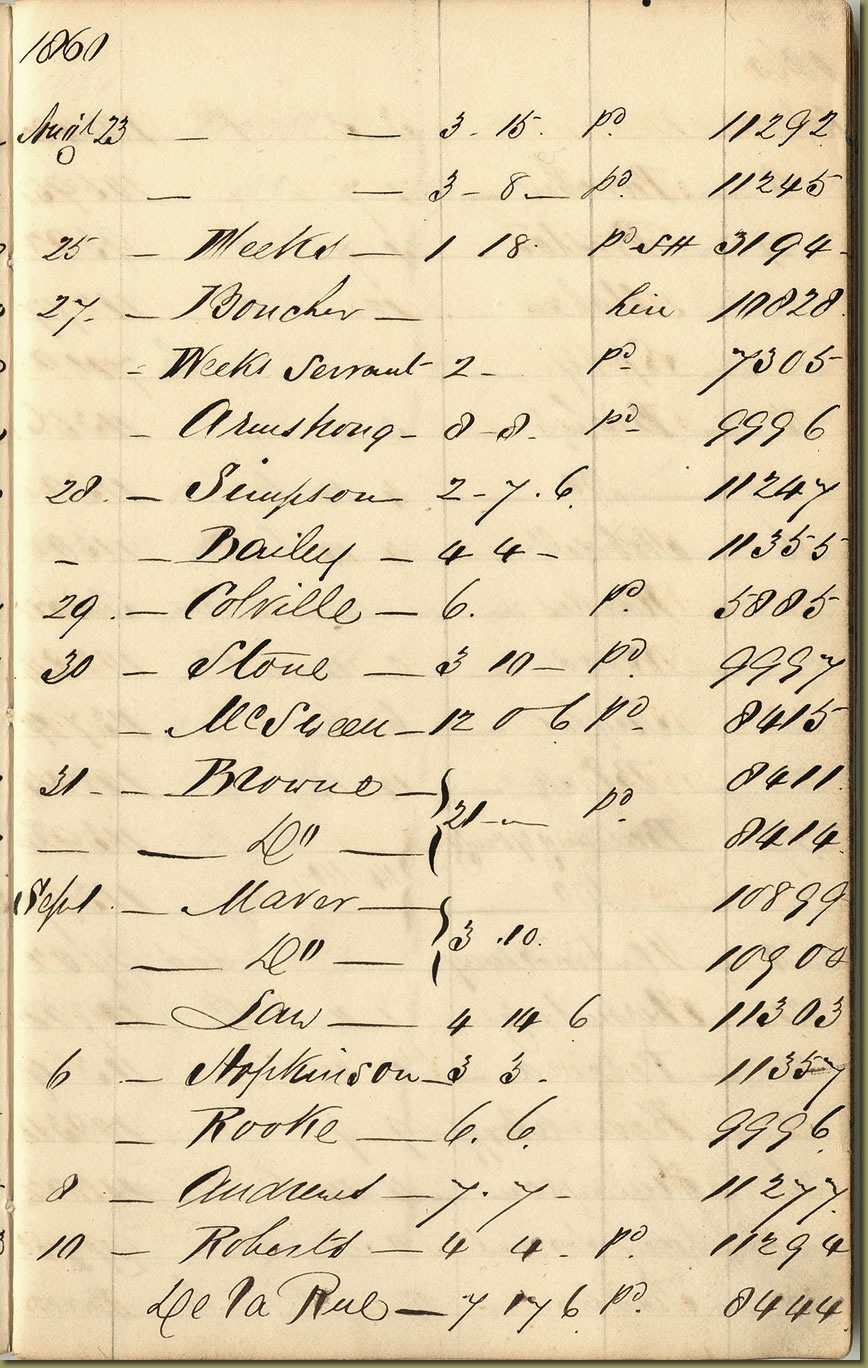 1860
Augt 23 — — 3. 15. pd. 11292
— — 3 - 8 — pd. 11245
25 — Weeks — 1 18. pd SH 3194
27. — Boucher — hin 10828
- Weeks Servant - 2 - pd 7305
- Armstrong - 8 - 8. pd 9996
28. — Simpson — 2 - 7. 6. 11247
- - Bailey - 4 4 - 11355
29. — Colville — 6. pd. 5885
30 — Stone — 3 10 — pd. 9997
— McSween — 12 0 6 pd. 8415
31 - — Browne — 8411
21 — pd
— — Do — 8414
Sept 1. — Maver — 10899
3. 10.
— Do — 10900
— Law — 4 14 6 11303
6 — Hopkinson — 3 3. 11357
— Rooke — 6. 6. 9996
8 — Andrews — 7. 7 - 11277
10 — Roberts — 4 4. pd. 11294
De La Rue — 7 17 6 pd. 8444